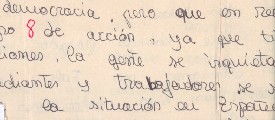 democracia, pero que en re
ro 8 de acción, ya que ti
iones, la gente se inquieta
diantes y trabajadores se s
la situación en España